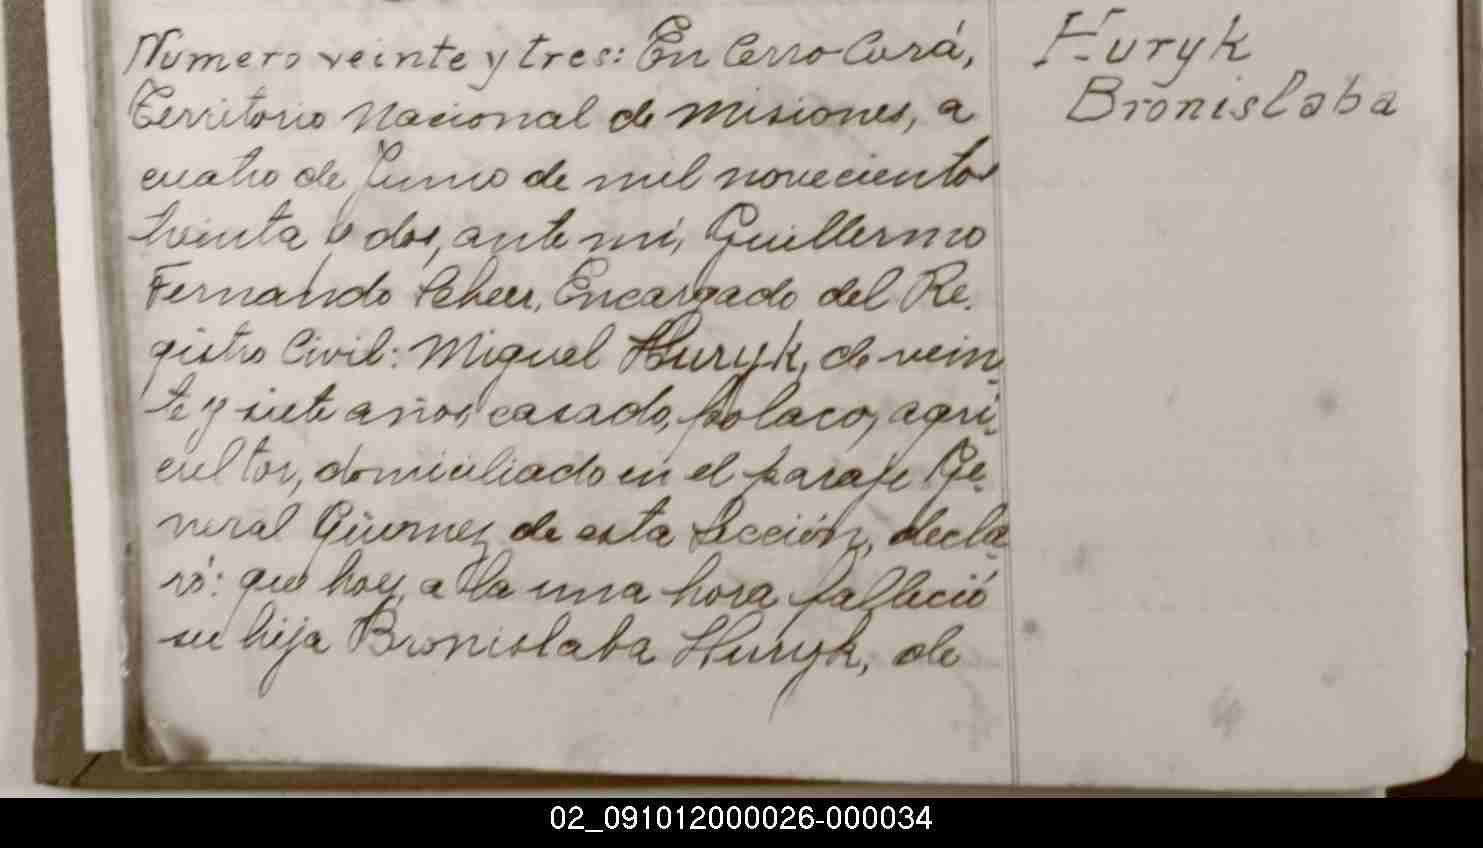 Numero veinte y tres: En Cerro-Corá,
Territorio Nacional de Misiones, a
cuatro de Junio de mil novecientos
treinta y dos, ante mi, Guillermo
Fernando Scheer, Encargado del Re-
gistro Civil: Miguel Huryk, de vein-
te y siete años, casado, polaco, agri-
cultor, domiciliado en el paraje Ge-
neral Güemes de esta Sección, decla-
ró: que hoy, a la una hora falleció
su hija Bronislaba Huryk, de
Huryk
Bronislaba
02_091012000026-000034